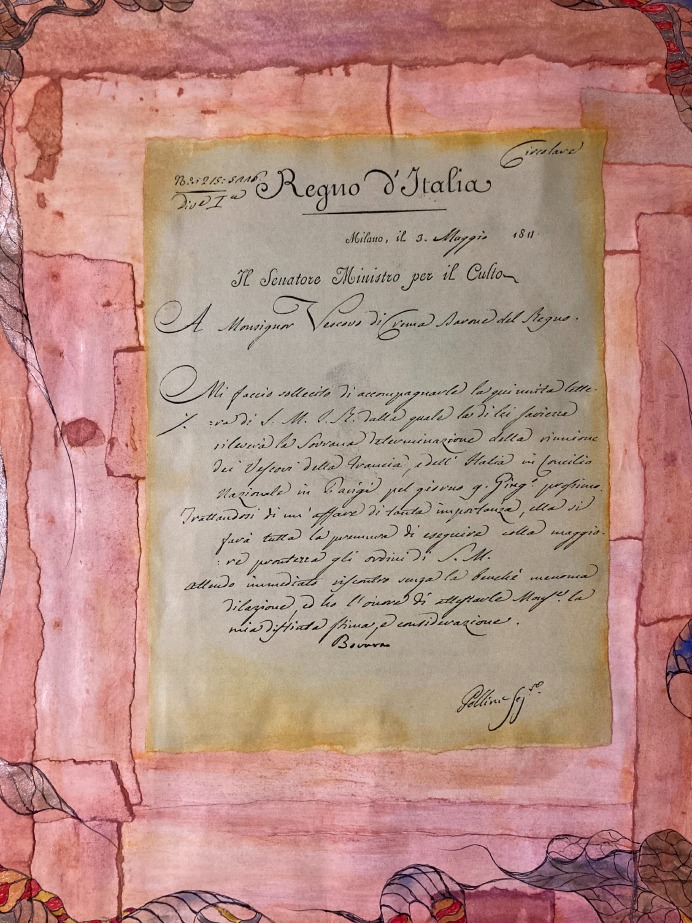 Circolare
Div.e I.a
Regno d'Italia
Milano, il 3. Maggio 1811.
Il Senatore Ministro per il Culto
A Monsignor Vescovo di Crema Barone del Regno.
Mi faccio sollecito di accompagnarle la qui unita lette-
:ra di S. M. I. R. dalla quale la di lei saviezza
rileverà la Sovrana determinazione della riunione
dei Vescovi della Francia, e dell' Italia in Concilio
Nazionale in Parigi pel giorno 9. Giug.o prossimo.
Trattandosi di un affare di tanta importanza, ella si
farà tutta la premura di eseguire colla maggio-
:re prontezza gli ordini di S. M.
Attendo immediato riscontro senza la benchè menoma
dilazione, ed ho l'onore di attestarle Mons.r la
mia distinta stima, e considerazione.
Bovara